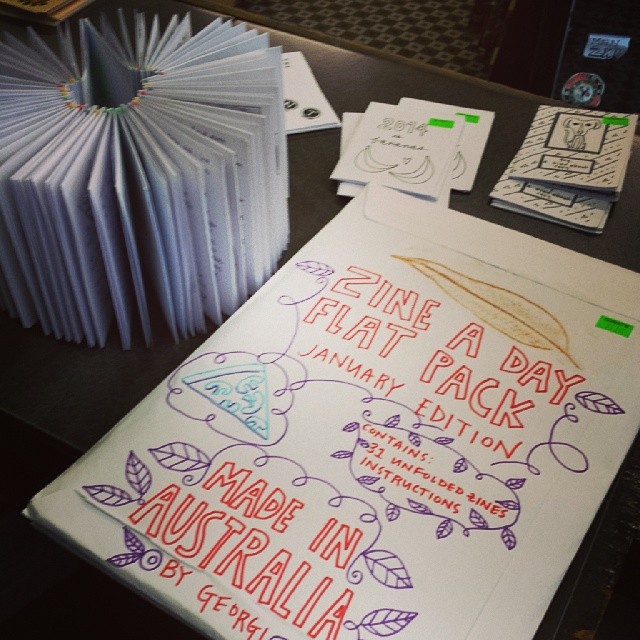 2014
bananas
ZINE A DAY
FLAT PACK
JANUARY EDITION
CONTAINS:
31 UNFOLDED ZINES
INSTRUCTIONS
MADE IN
AUSTRALIA
BY GEORGI